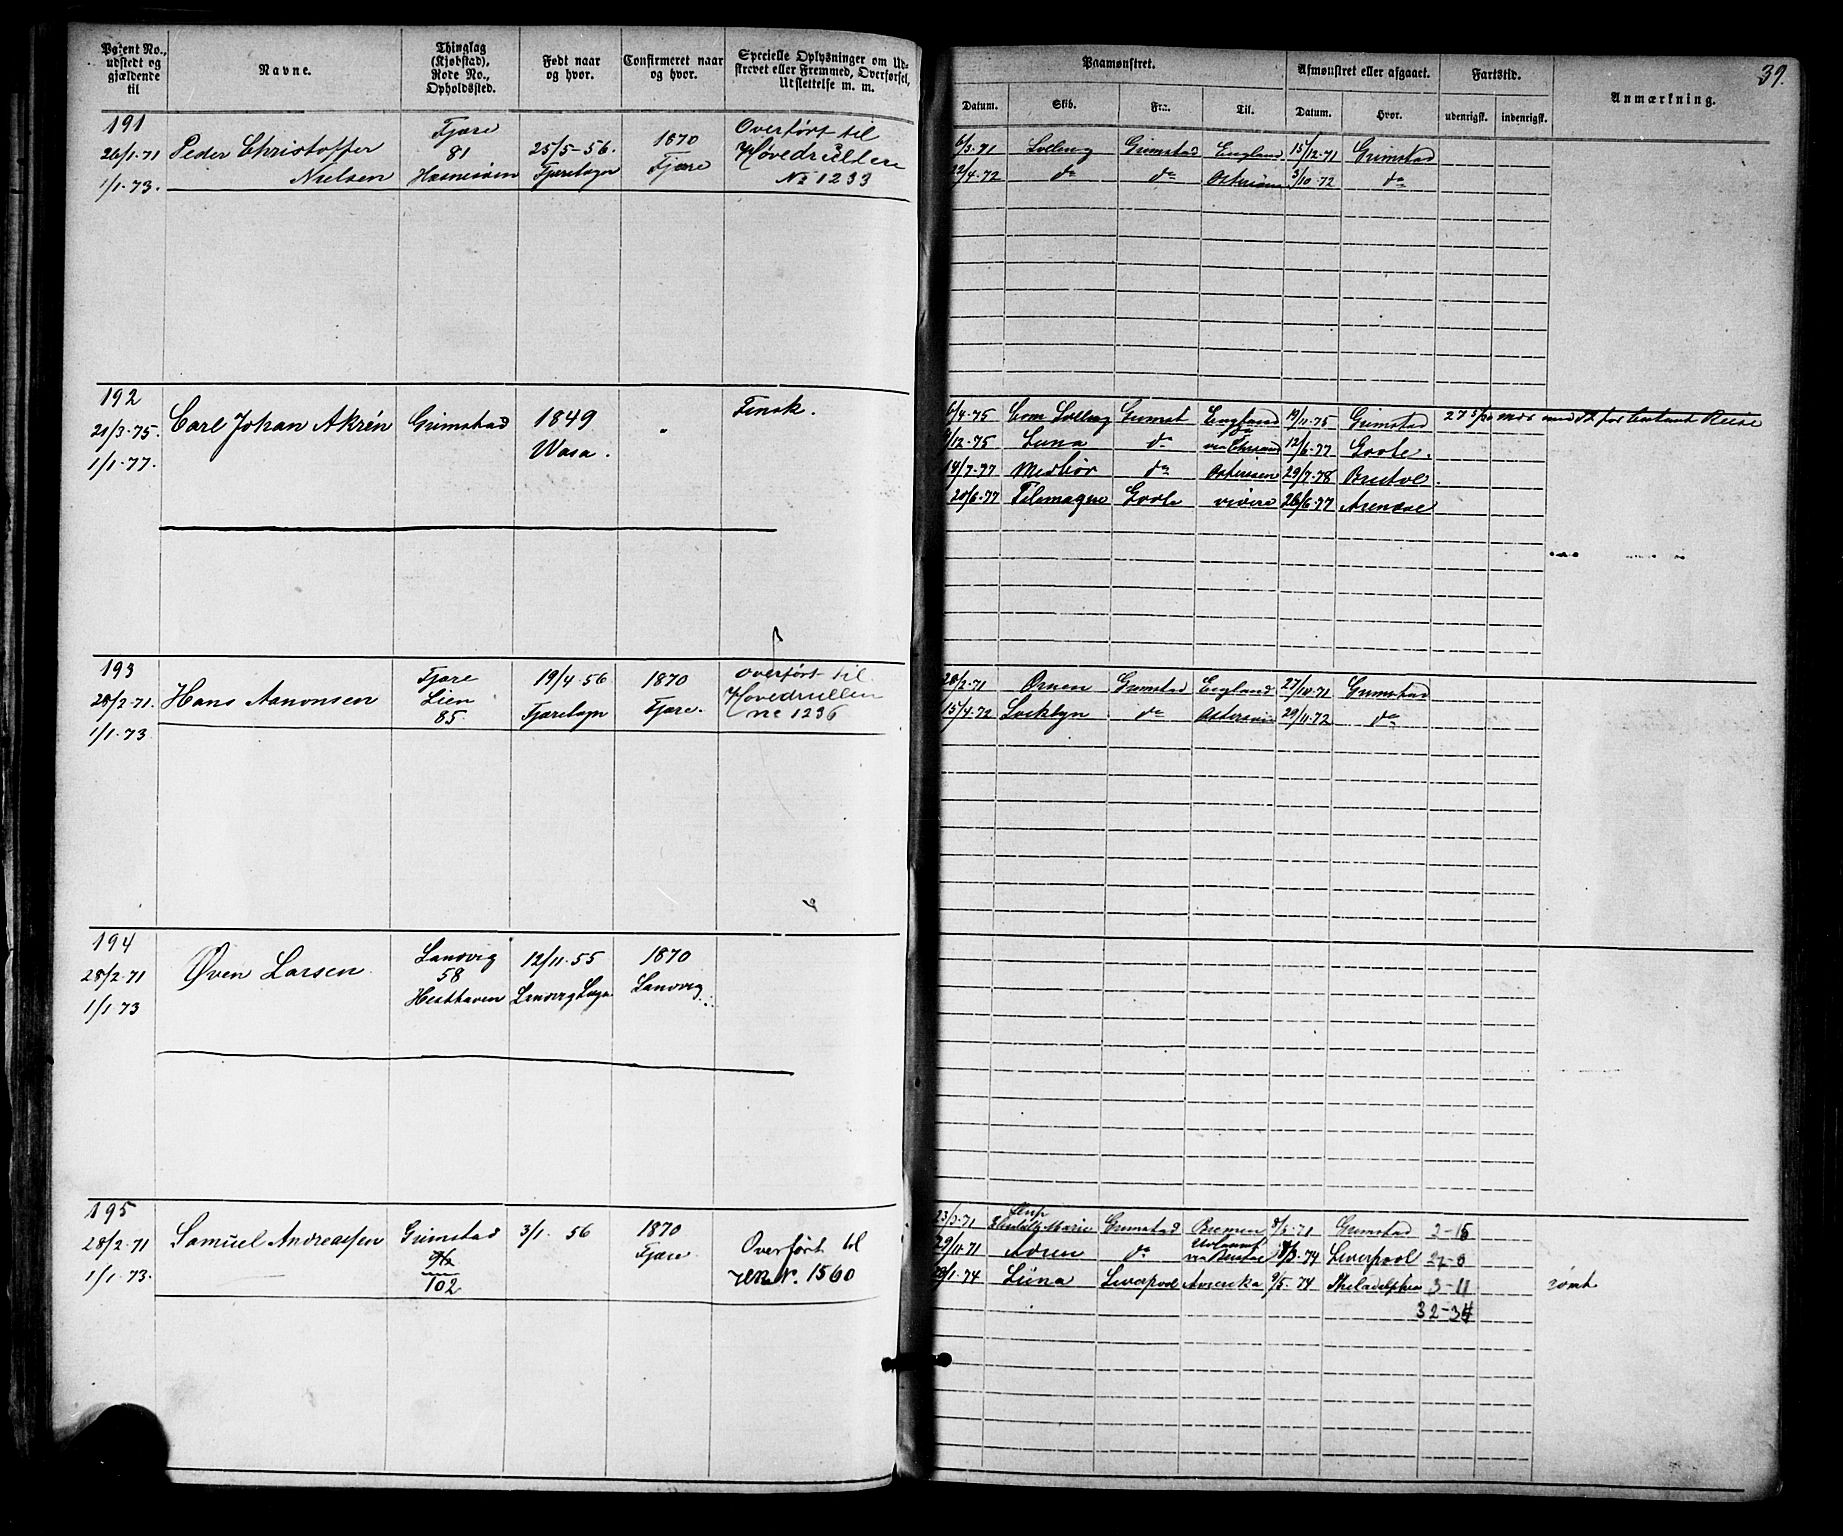 Patent No., udstedt og gjældende til
Navne.
Thinglag (Kjøbstad), Rode No., Opholdssted.
Født naar og hvor.
Confirmeret naar og hvor.
Specielle Oplysninger om Udskrevet eller Fremmed, Overførsel, Udslettelse m. m.
Paamønstret.
Afmønstret eller afgaaet.
Fartstid.
Anmærkning.
39.
Datum. Skib. Fra. Til. Datum. Hvor. udenrigsk. indenrigsk.
191
26/1-71
1/1-73.
Peder Christoffer
Nielsen
Fjære
81
25/5-56.
Fjæresogn
1870
Fjære
Overført til
Hovedrullen
No 1233
6/3-71 Solborg Grimstad England 15/12-71 Grimstad
22/4-72 do do Østersøen 3/10-72 do
192
21/3-75.
1/1-77.
Carl Johan Akrén
Grimstad
1849
Wasa.
Finsk.
6/4-75 Solborg Grimst England 19/11-75 Grimstad
/12-75 Luna do 12/6-77 Goole.
14/7-77 do Østersøen 29/7-78 Bristol.
20/6-77 Telemaque Goole 26/6-77 Arendal
193
28/2-71.
1/1-73.
Hans Aanonsen
Fjære
Lien
85.
19/4-56
Fjæresogn
1870
Fjære.
Overført til
Hovedrullen
No 1236
28/2-71 Ørnen Grimstad England 27/10-71 Grimstad
15/4-72 do Østersøen 29/11-72 do
194
28/2-71
1/1-73
Øven Larsen
Landvig
58
Hesthaven
12/11-55
Landvig Sogn
1870
Landvig.
195
28/2-71
1/1-73.
Samuel Andreassen
Grimstad
102
3/1 56
1870
Fjære.
Overført til
No. 1560
23/3-71 Marie Grimstad Bremen 8/6-71 Grimstad 2-15
29/11-71 do 8/3-74 Liverpool
28/1-74 Luna Liverpool Amerika 9/5-74 Philadelphia 3-11 rømt
32-34